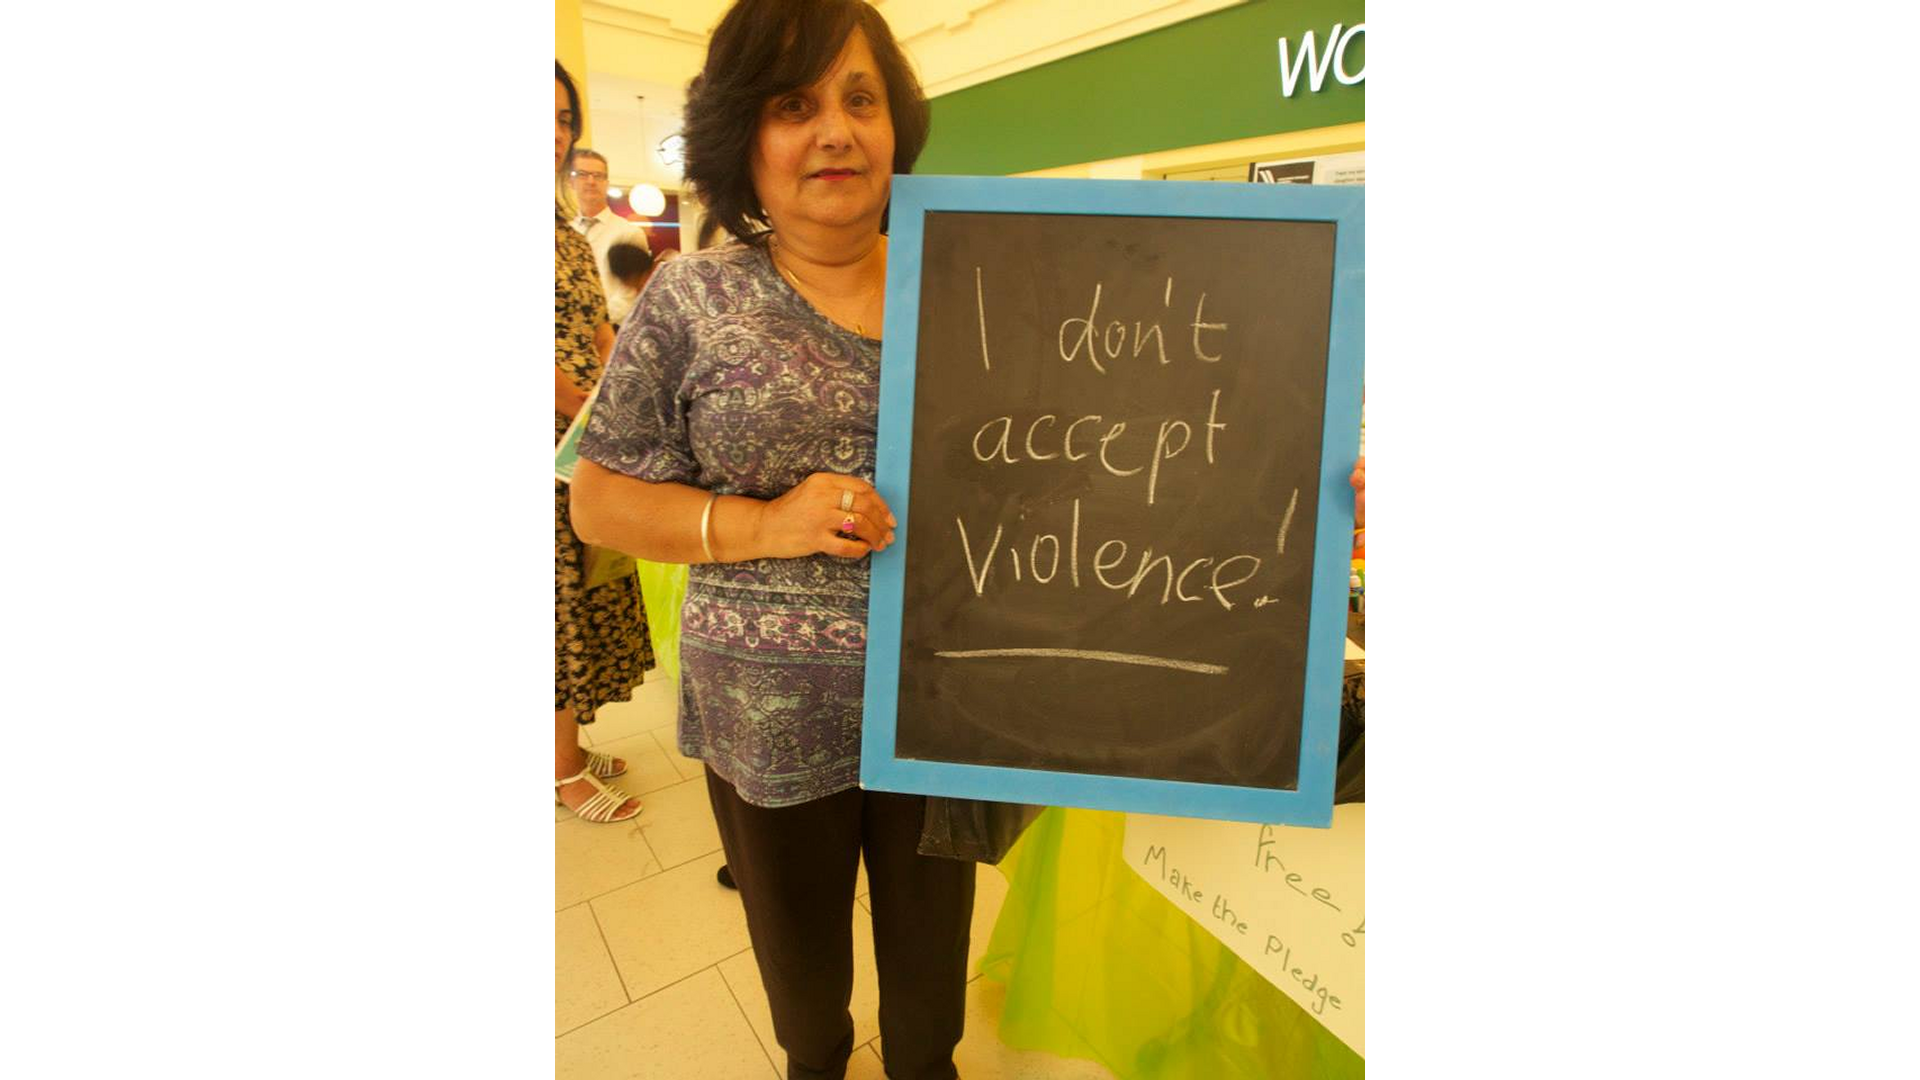 WO
I don't
accept
Violence!
free
Make the Pledge